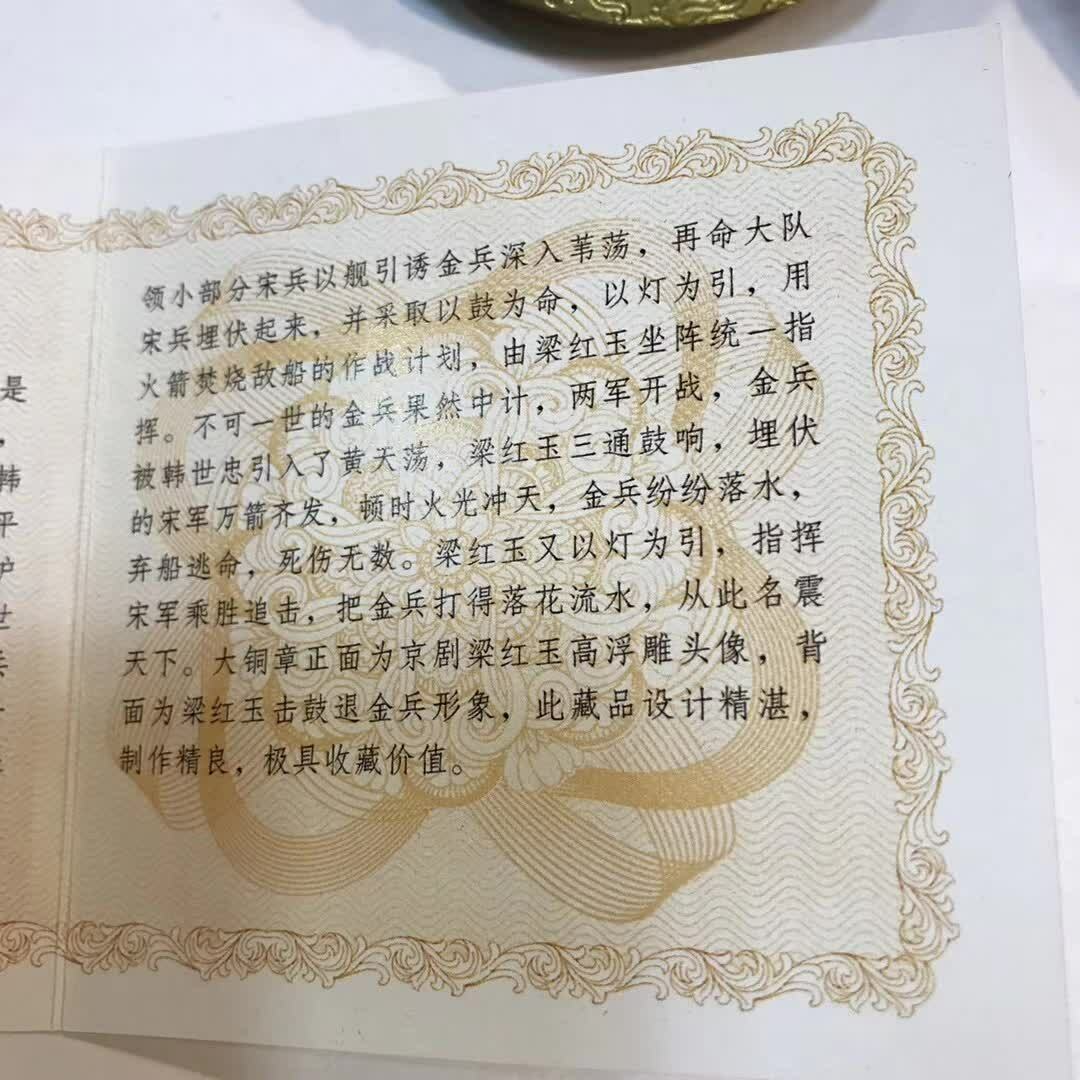 领小部分宋兵以舰引诱金兵深入苇荡，再命大队
宋兵埋伏起来，并采取以鼓为命，以灯为引，用
火箭焚烧敌船的作战计划，由梁红玉坐阵统一指
挥。不可一世的金兵果然中计，两军开战，金兵
被韩世忠引入了黄天荡，梁红玉三通鼓响，埋伏
的宋军万箭齐发，顿时火光冲天，金兵纷纷落水，
弃船逃命，死伤无数。梁红玉又以灯为引，指挥
宋军乘胜追击，把金兵打得落花流水，从此名震
天下。大铜章正面为京剧梁红玉高浮雕头像，背
面为梁红玉击鼓退金兵形象，此藏品设计精湛，
制作精良，极具收藏价值。
是
，
韩
平
世